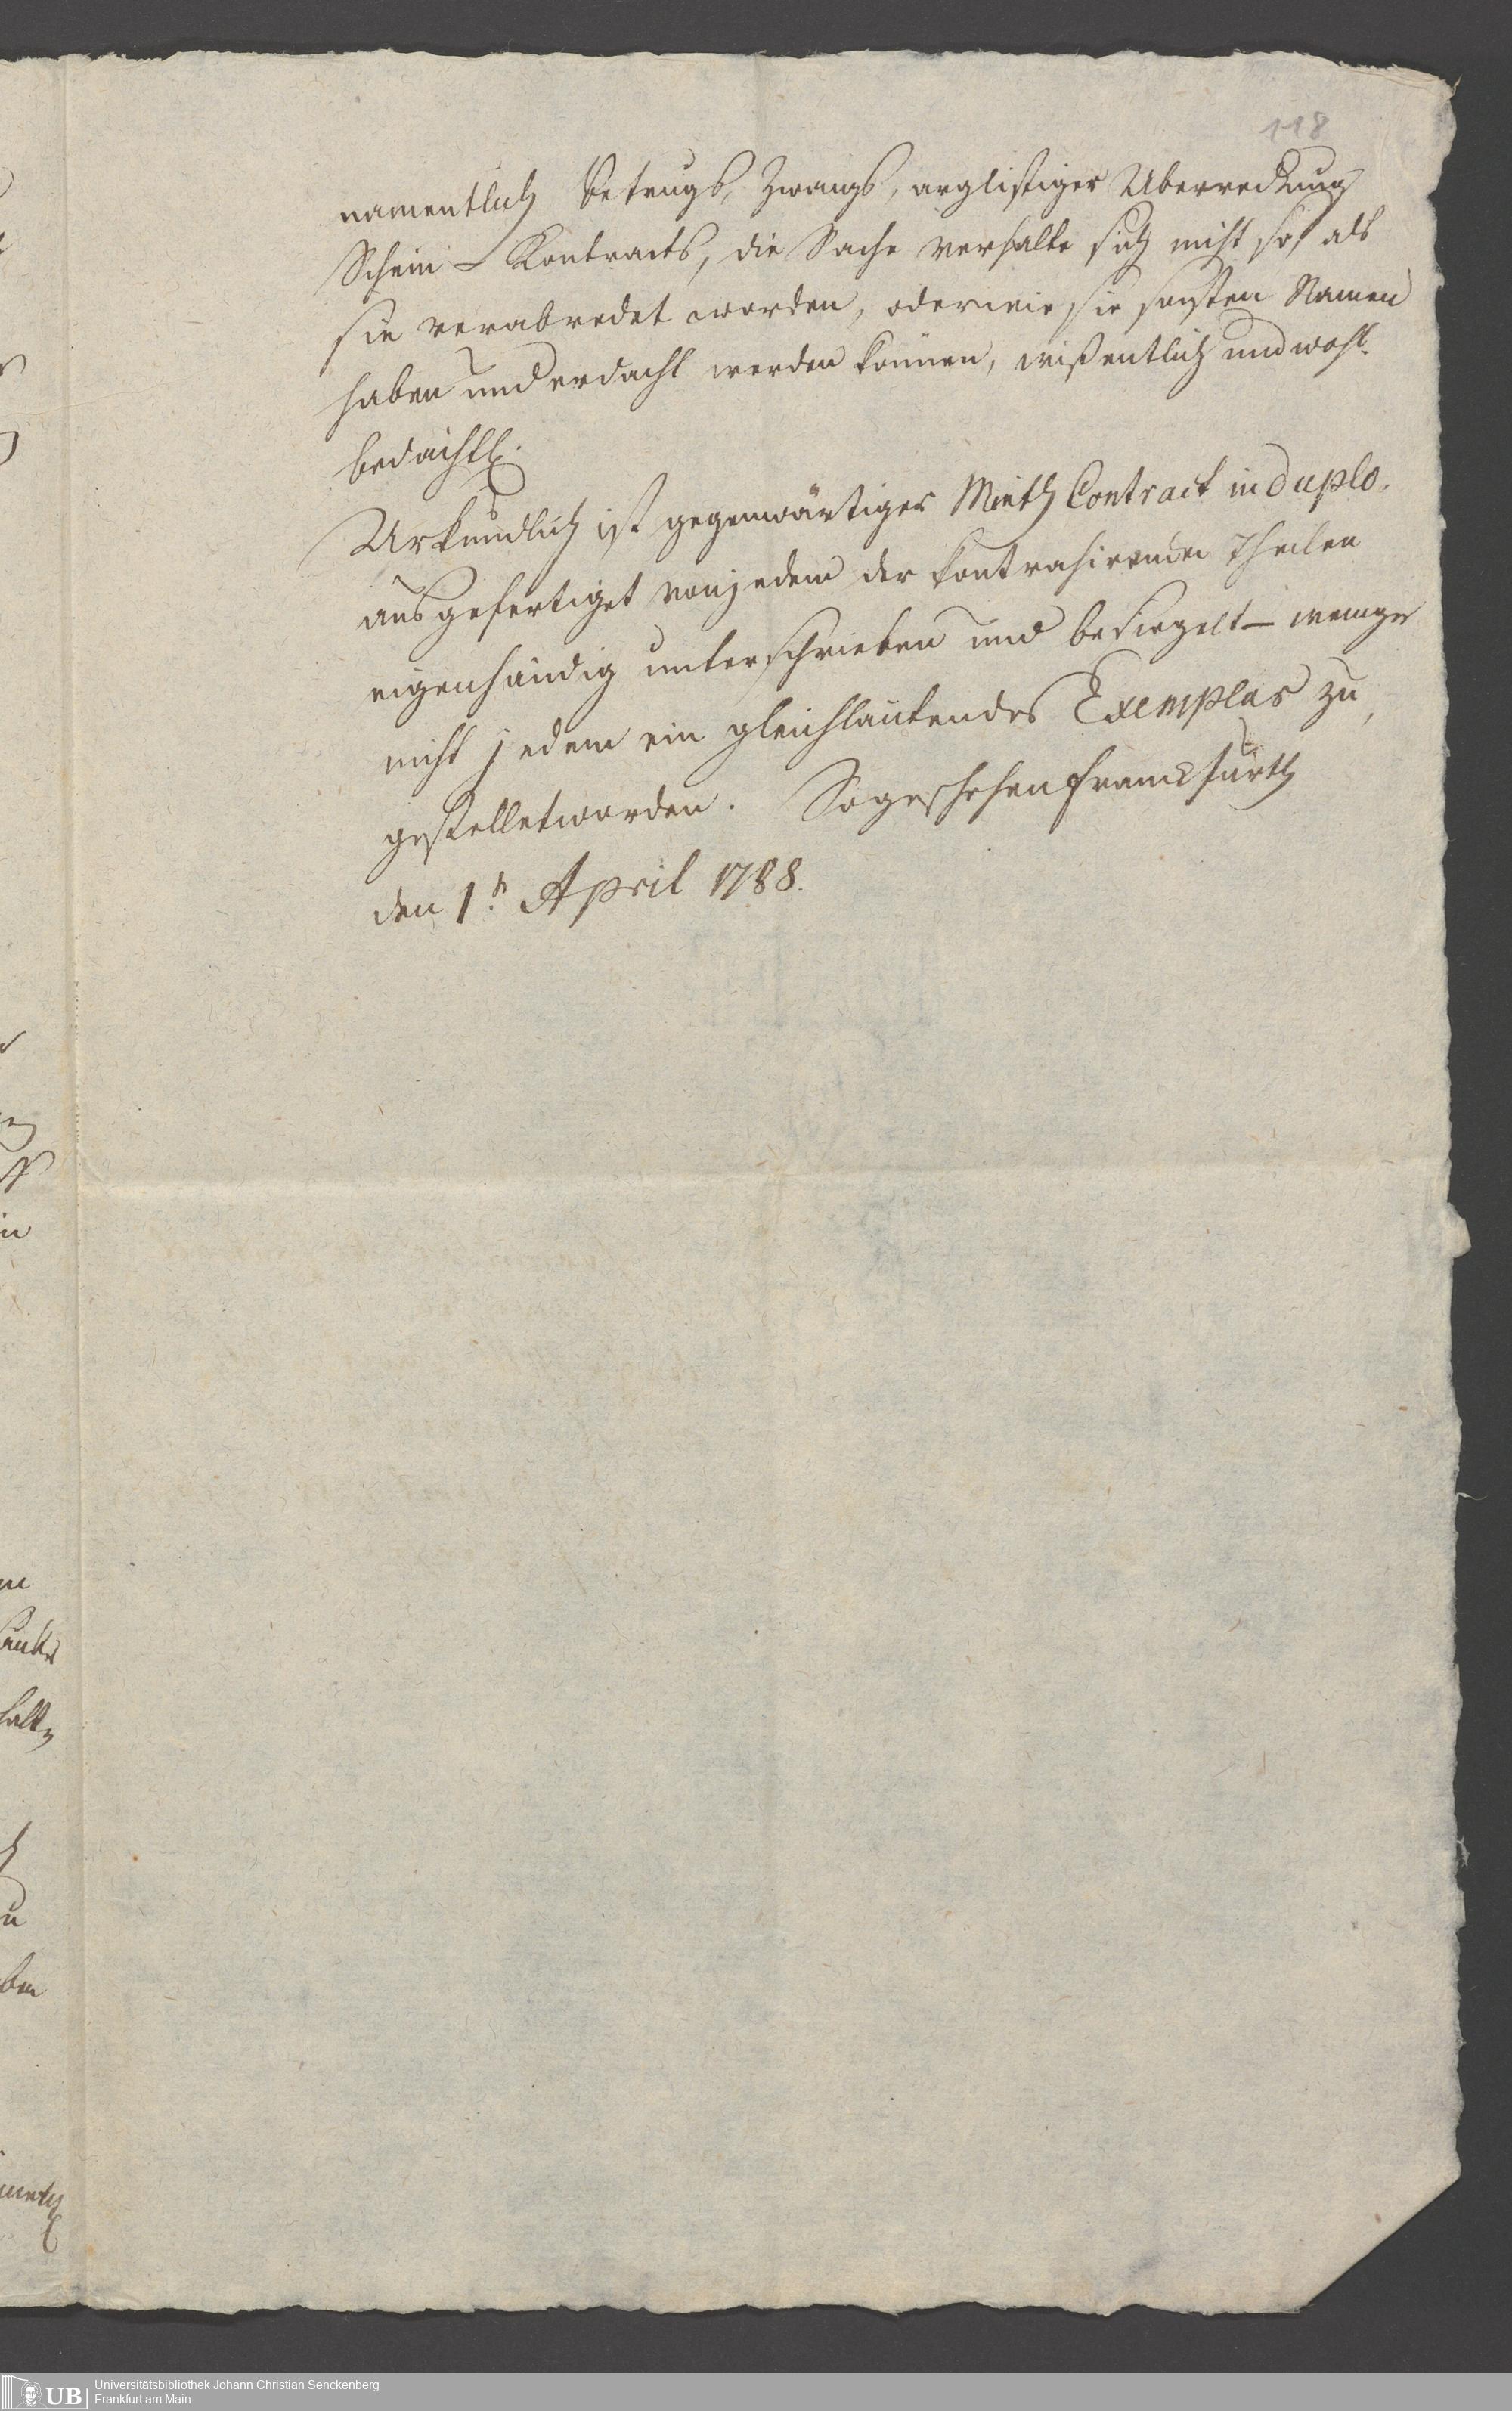 118
namentlich Betrugs, Zwangs, arglistiger Uberredung
Schein-Kontracts, die Sache verhalte sich nicht so, als
sie verabredet worden, oder wie sie sonsten Namen
haben und erdacht werden können, wißentlich und wohl-
bedächtl.
Urkundlich ist gegenwärtiger Mieth Contract in duplo.
ausgefertiget von jedem der kontrahirenden Theilen
eigenhändig unterschrieben und besiegelt-
nicht jedem ein gleichlautendes Exemplar zu,
gestellet worden. So geschehen Franckfurth
den 1n April 1788.
UB
Universitätsbibliothek Johann Christian Senckenberg
Frankfurt am Main